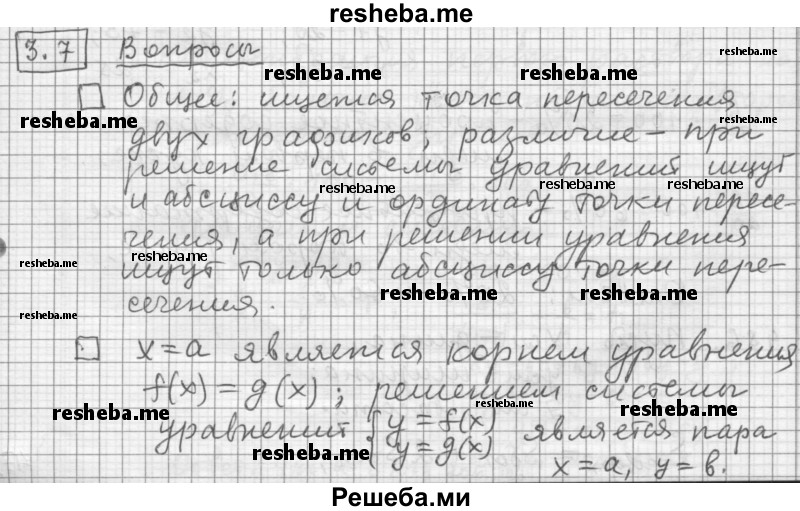 resheba.me
3.7 Вопросы
resheba.me
resheba.me resheba.me
Общее: ищется точка пересечения
resheba.me resheba.me
двух графиков; различие – при
решение системы уравнений ищут
resheba.me resheba.me resheba.me
и абсциссу и ординату точки пересе-
чения, а при решении уравнения
resheba.me resheba.me
ищут только абсциссу точки пере-
resheba.me resheba.me
сечения.
resheba.me
x=a является корнем уравнения
f(x)=g(x); решением системы
resheba.me resheba.me resheba.me
уравнений { y=f(x) является пара
y=g(x)
resheba.me
x=a, y=в.
Решеба.ми